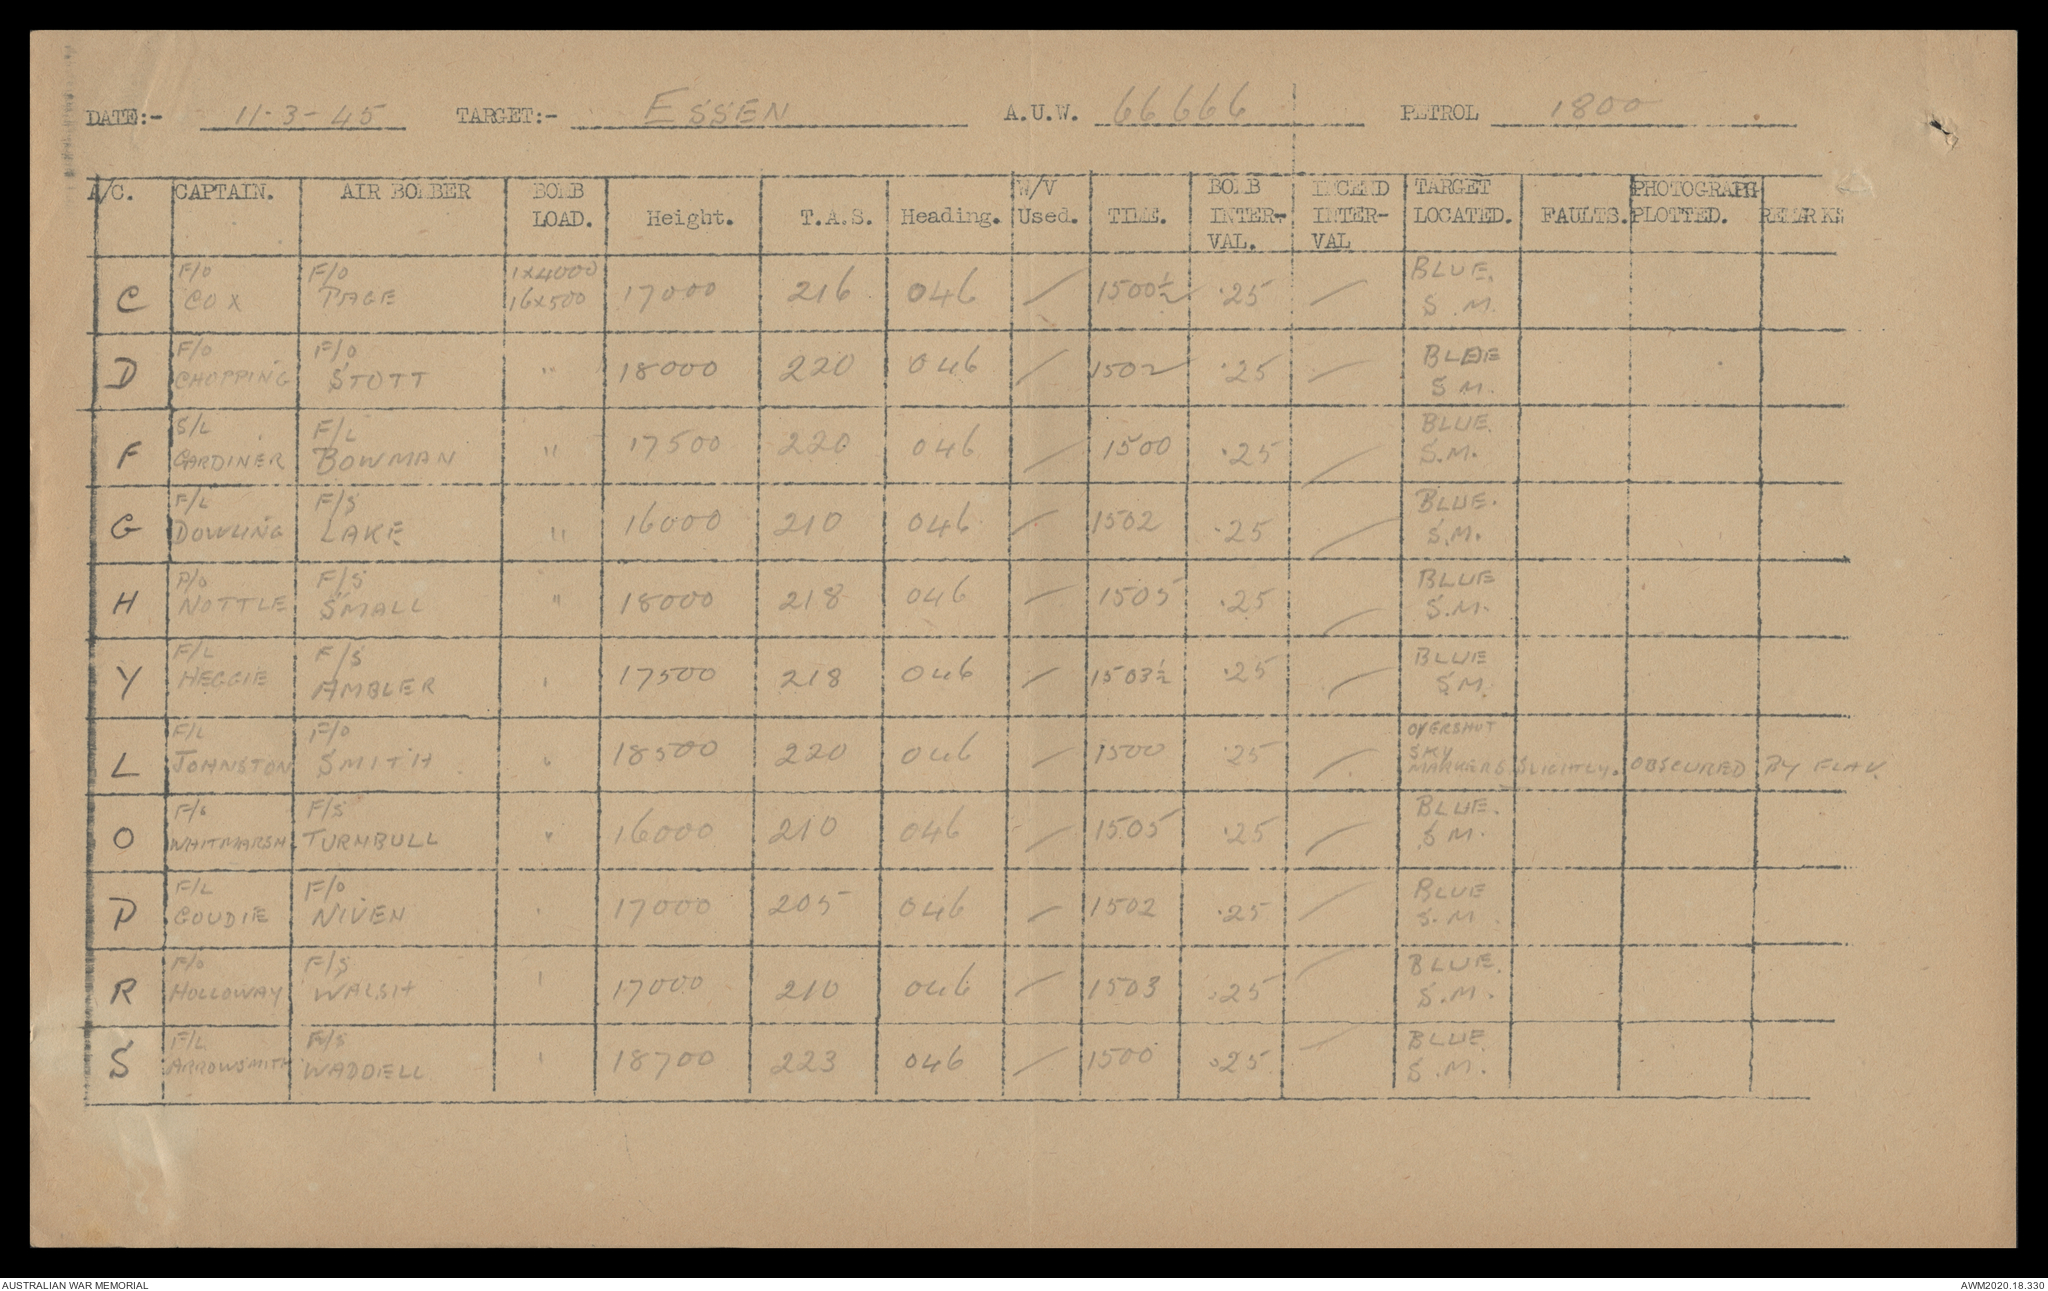 DATE:- 11-3-45 TARGET:- ESSEN A.U.W. 66666 PETROL 1800
A/C. CAPTAIN. AIR BOMBER BOMB LOAD. Height. T.A.S. Heading. W/V Used. TIME. BOMB INTER-VAL. INCEND INTER-VAL TARGET LOCATED. FAULTS. PHOTOGRAPH PLOTTED. REMARKS
C F/O COX F/O PAGE 1x4000 16x500 17000 216 046 / 1500½ .25 / BLUE. S.M.
D F/O CHOPPING F/O STOTT " 18000 220 046 / 1502 .25 / BLUE S.M.
F S/L GARDINER F/L BOWMAN " 17500 220 046 / 1500 .25 / BLUE. S.M.
G F/L DOWLING F/S LAKE " 16000 210 046 / 1502 .25 / BLUE. S.M.
H P/O NOTTLE F/S SMALL " 18000 218 046 / 1505 .25 / BLUE S.M.
Y F/L HEGGIE F/S AMBLER " 17500 218 046 / 1503½ .25 / BLUE S.M.
L F/L JOHNSTON F/O SMITH " 18500 220 046 / 1500 .25 / OVERSHOT SKY MARKERS SLIGHTLY. OBSCURED BY FLAK.
O F/O WHITMARSH F/S TURNBULL " 16000 210 046 / 1505 .25 / BLUE. S.M.
P F/L GOUDIE F/O NIVEN " 17000 205 046 / 1502 .25 / BLUE S.M.
R F/O HOLLOWAY F/S WALSH " 17000 210 046 / 1503 .25 / BLUE. S.M.
S F/L ARROWSMITH F/S WADDELL " 18700 223 046 / 1500 .25 / BLUE S.M.
AUSTRALIAN WAR MEMORIAL
AWM2020.18.330